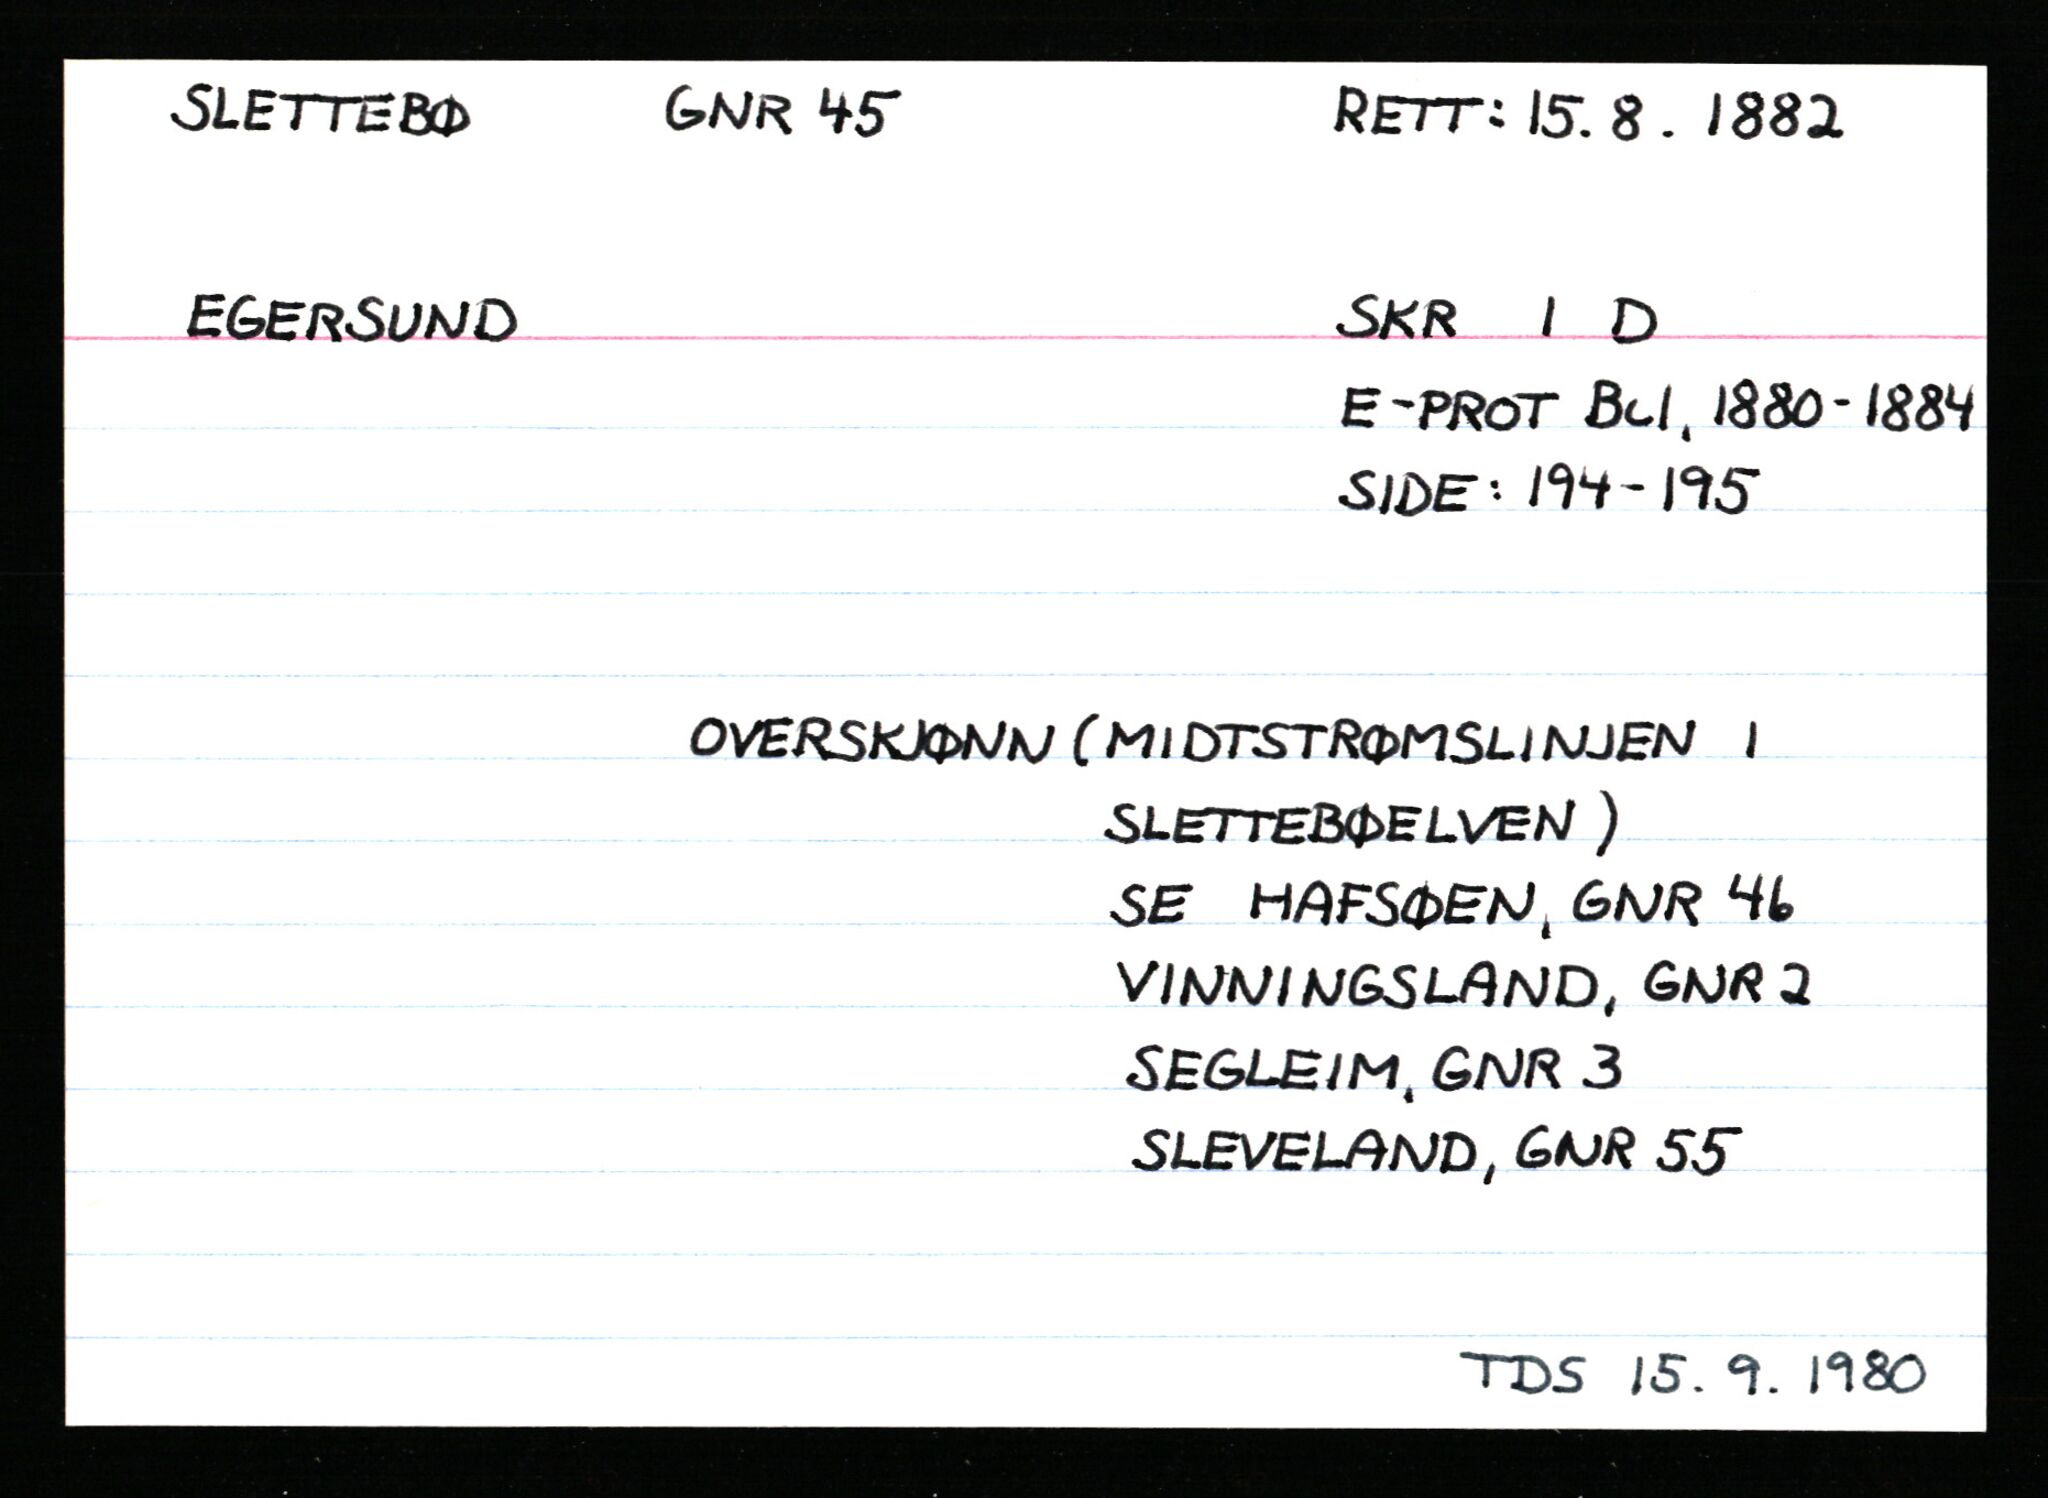 SLETTEBØ GNR 45 RETT: 15. 8. 1882
EGERSUND SKR I D
E-PROT BcI, 1880-1884
SIDE: 194-195
OVERSKJØNN (MIDTSTRØMSLINJEN I
SLETTEBØELVEN)
SE HAFSØEN, GNR 46
VINNINGSLAND, GNR 2
SEGLEIM, GNR 3
SLEVELAND, GNR 55
TDS 15. 9. 1980